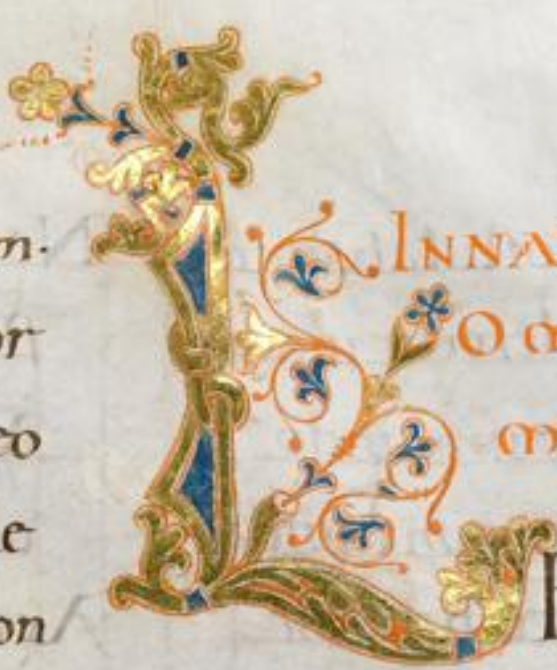 m.
or
eo
e
on
L
INNA
O
m